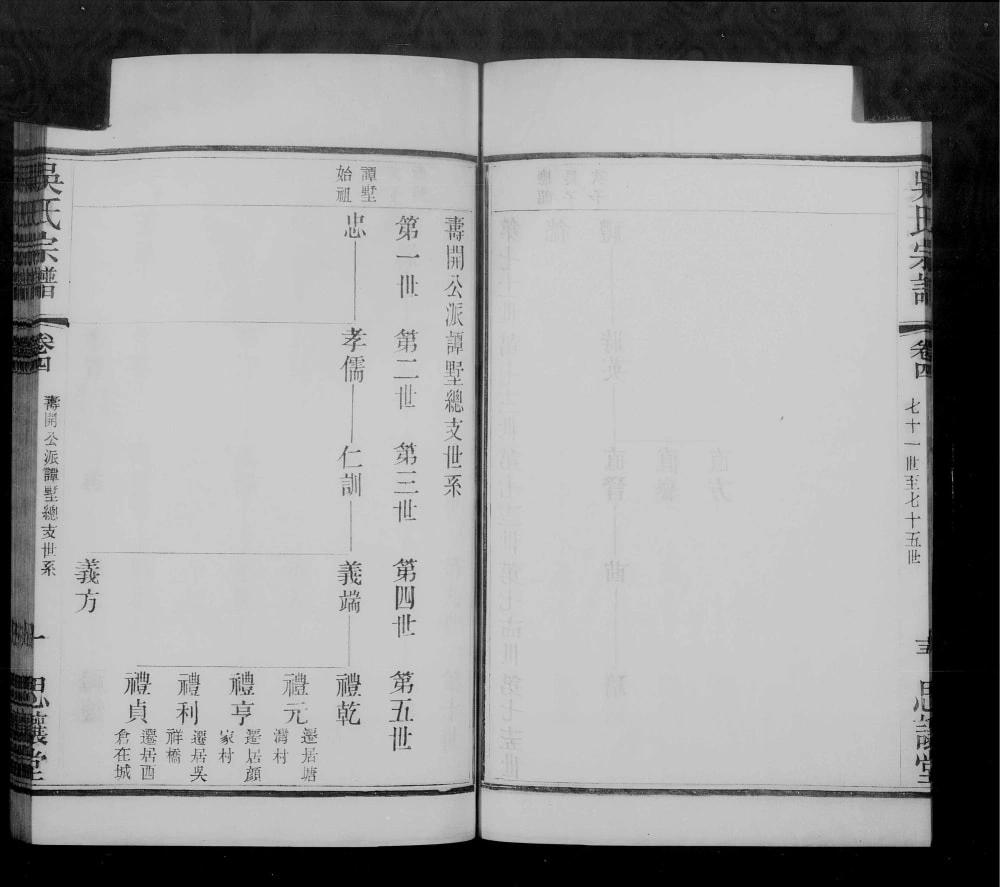 吳氏宗譜
卷四
七十一世至七十五世
思讓堂
壽開公派譚墅總支世系
第一世
第二世
第三世
第四世
第五世
譚墅
始祖
忠
孝儒
仁訓
義端
禮乾
禮元
遷居塘
灣村
禮亨
遷居顏
家村
禮利
遷居吳
祥橋
禮貞
遷居西
倉在城
義方
吳氏宗譜
卷四
壽開公派譚墅總支世系
一
思讓堂